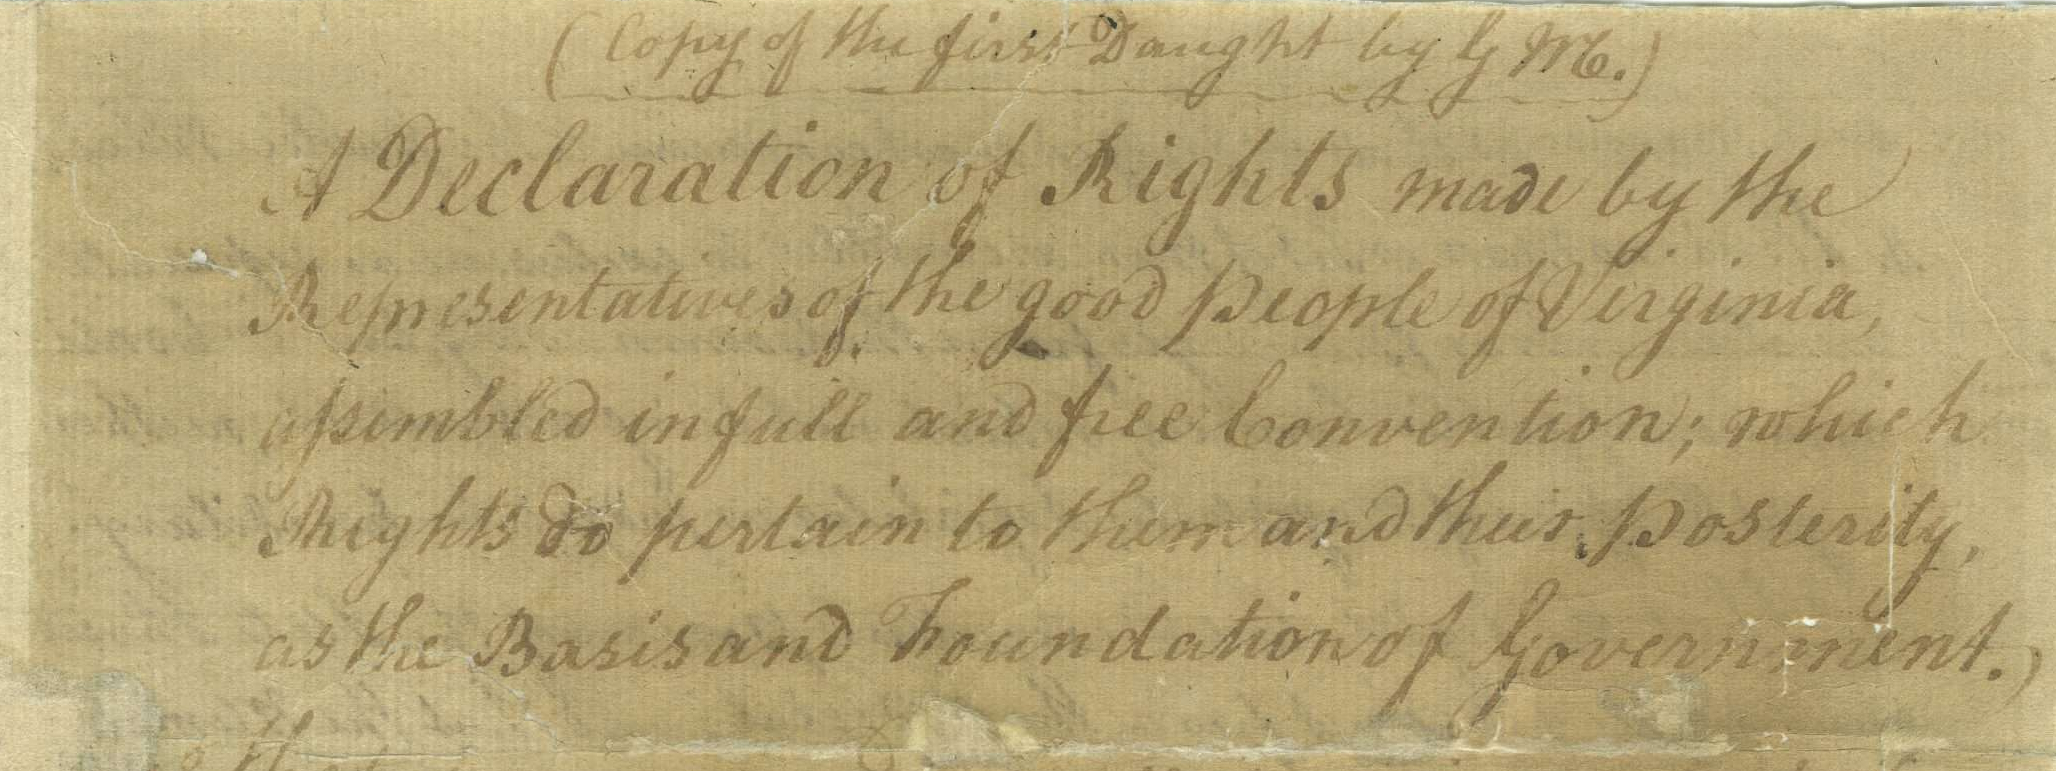 (Copy of the first Daught by G M.)
A Declaration of Rights made by the
Representatives of the good People of Virginia,
assembled in full and free Convention; which
Rights do pertain to them and their Posterity,
as the Basis and Foundation of Government.)